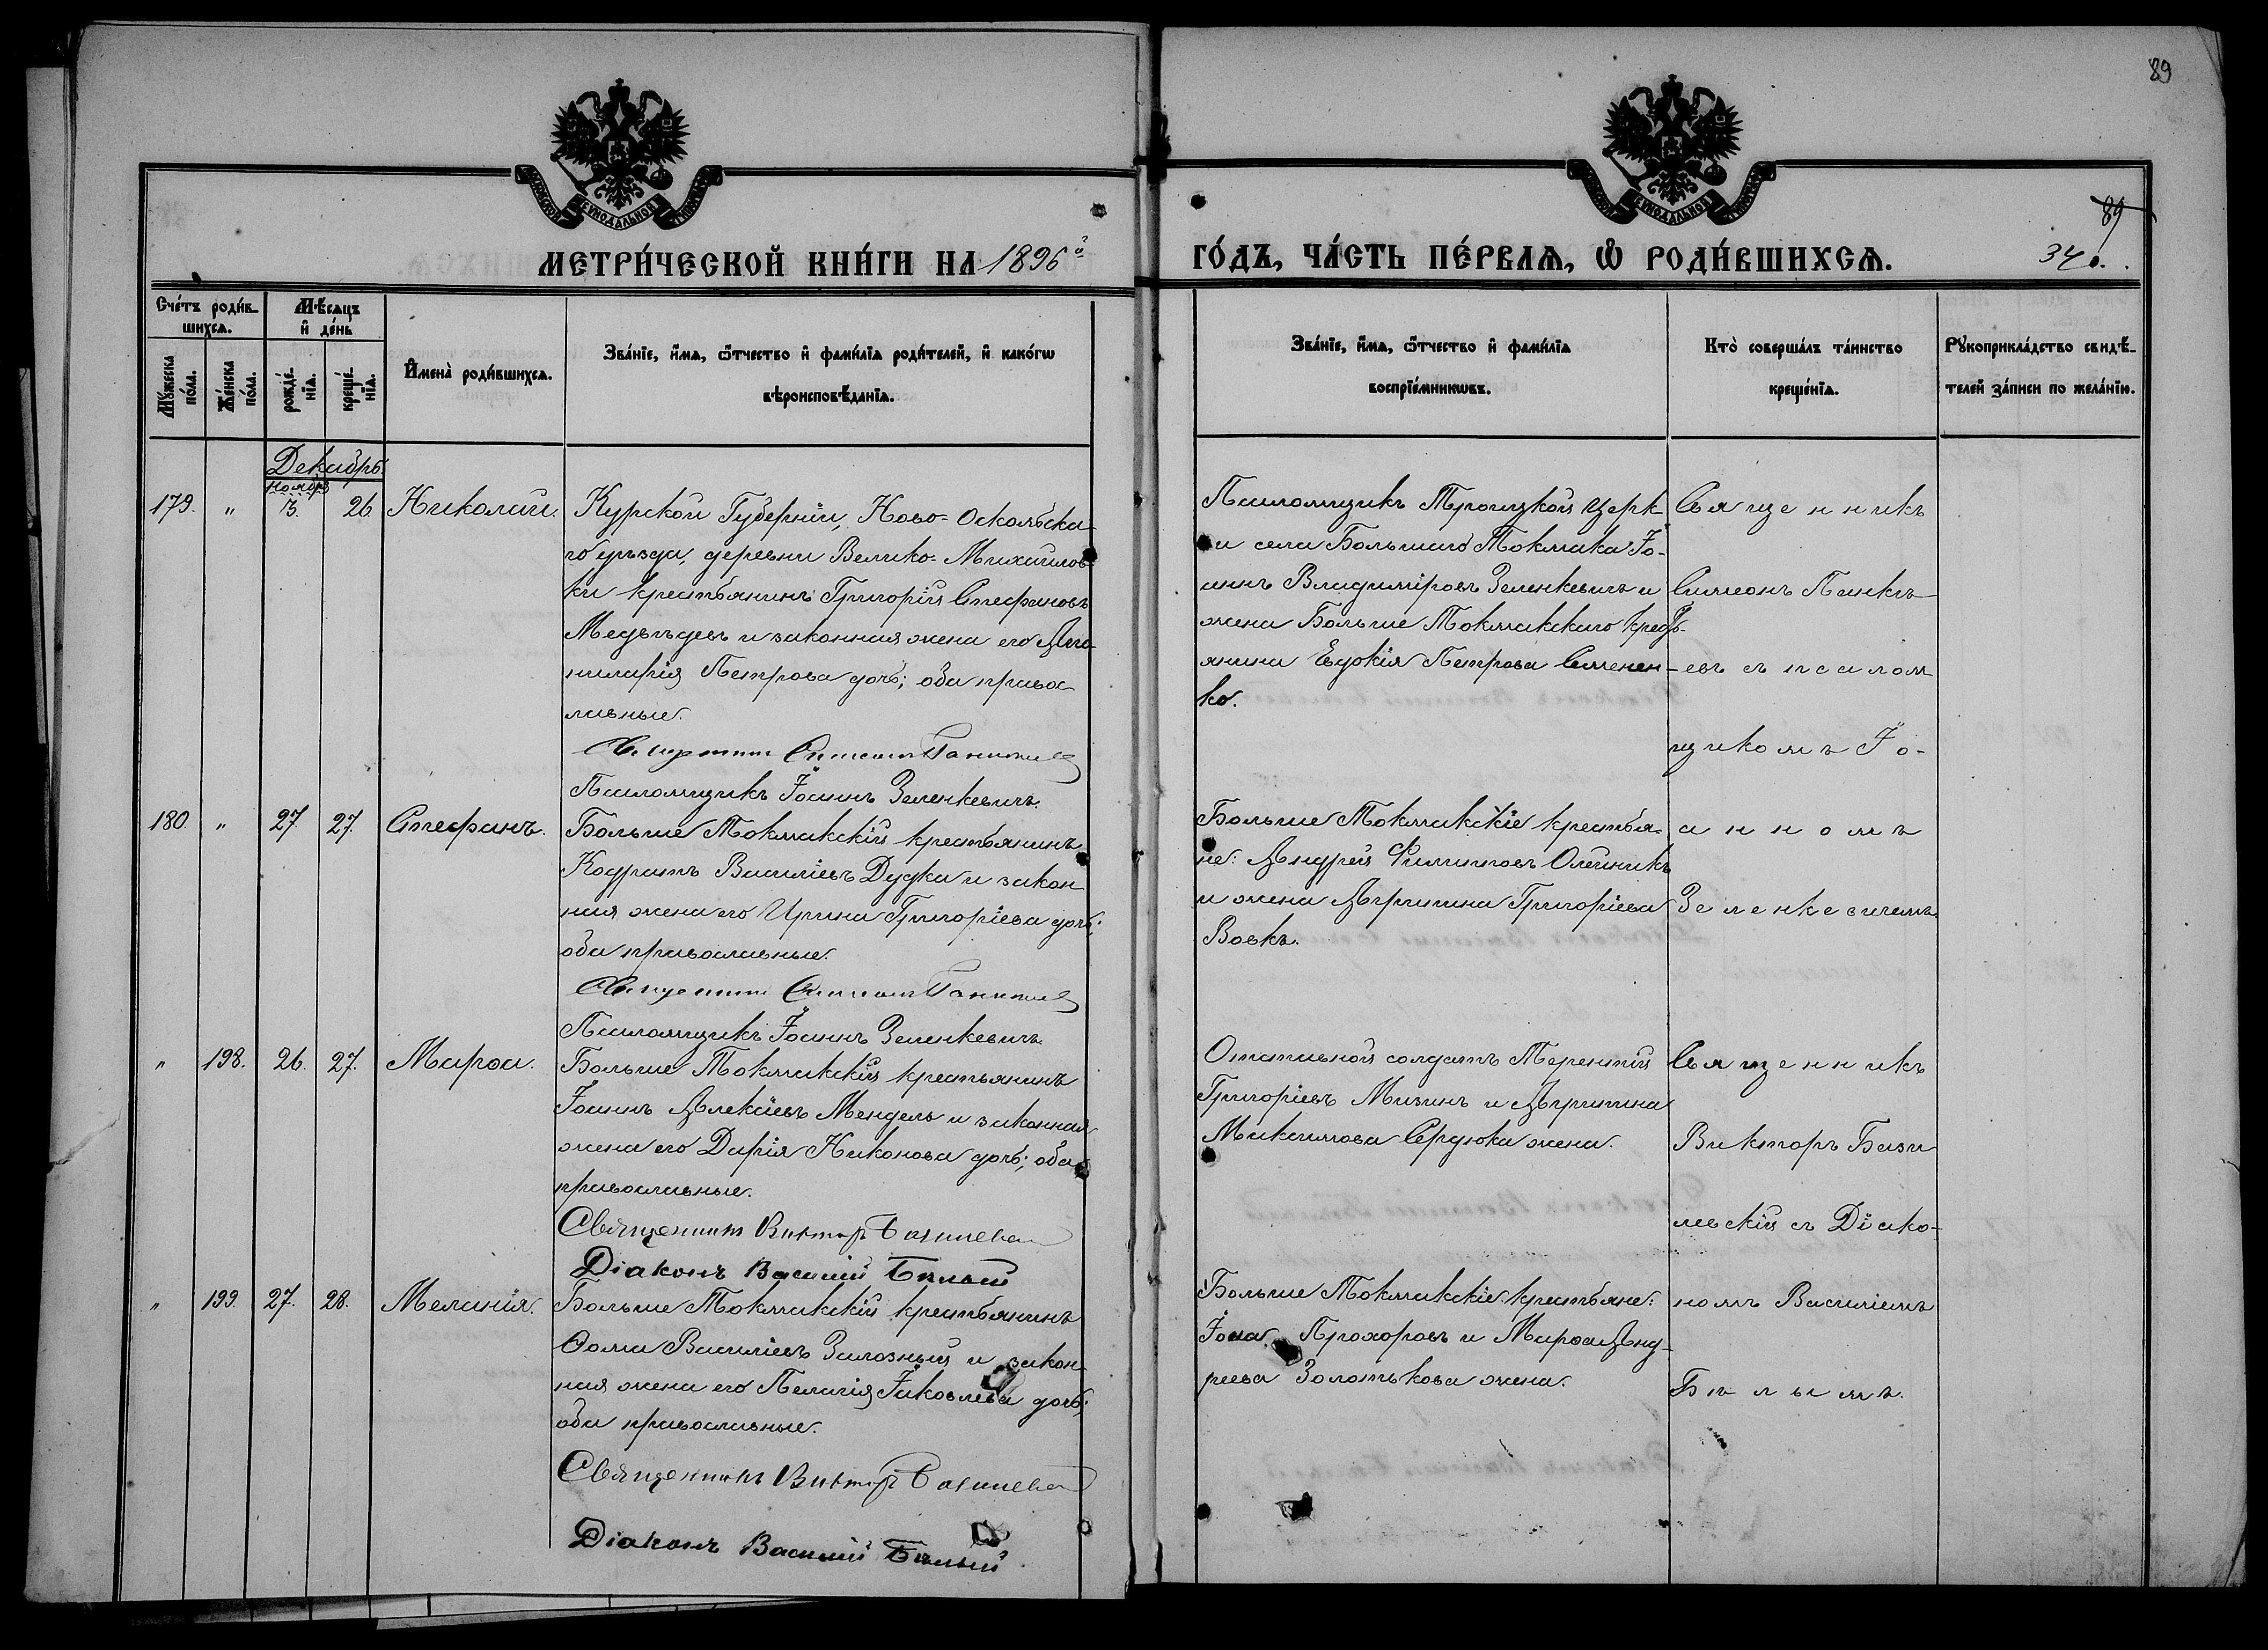 89
МОСКОВСКОЙ СѴНОДАЛЬНОЙ ТИПОГРАФІИ
МОСКОВСКОЙ СѴНОДАЛЬНОЙ ТИПОГРАФІИ
89
340.
МЕТРИ́ЧЕСКОЙ КНИ́ГИ НА 1896й
ГО́ДЪ, ЧА́СТЬ ПЕ́РВАѦ, Ѡ РОДИ́ВШИХСѦ.
Сче́тъ роди́в-
шихсѧ.
Мѣ́сѧцъ
и҆ де́нь
Мꙋ́жеска
по́ла.
Же́нска
по́ла.
рожде́-
нїѧ.
креще́-
нїѧ.
И҆мена̀ роди́вшихсѧ.
Зва́нїе, и҆́мѧ, ѻ҆́тчество и҆ фами́лїѧ роди́телей, и҆ како́гѡ
вѣроисповѣ́данїѧ.
Зва́нїе, и҆́мѧ, ѻ҆́тчество и҆ фами́лїѧ
воспрїе́мникѡвъ.
Кто̀ соверша́лъ та́инство
креще́нїѧ.
Рꙋкоприкла́дство свидѣ́-
телей за́писи по жела́нїю.
Декабрь
Ноябрь
179. " 13. 26. Николай.
Курской Губерніи, Ново-Оскольска-
го уѣзда, деревни Велико-Михайлов-
ки крестьянинъ Григорій Стефановъ
Медвѣдевъ и законная жена его
Петрова дочь; оба правос-
лавные.
Священникъ Симеонъ Панкѣевъ
Псаломщикъ Іоаннъ Зеленкевичъ.
Псаломщикъ Троицкой церк-
ви села Большаго Токмака Іо-
аннъ Владиміровъ Зеленкевичъ и
жена Больше Токмакскаго кресть-
янина Евдокія Петрова Семенен-
ко.
Священникъ
Симеонъ Панкѣ-
евъ съ псалом-
щикомъ Іо-
анномъ
Зеленкевичемъ.
180. " 27. 27. Стефанъ.
Больше Токмакскій крестьянинъ
Кодратъ Василіевъ Дудка и закон-
ная жена его Ирина Григоріева дочь;
оба православные.
Священникъ Симеонъ Панкѣевъ
Псаломщикъ Іоаннъ Зеленкевичъ.
Больше Токмакскіе крестья-
не: Андрей Филиповъ Олейникъ
и жена Агрипина Григоріева
Вовкъ.
" 198. 26. 27. Марѳа.
Больше Токмакскій крестьянинъ
Іоаннъ Алексіевъ Мендель и законная
жена его Дарія Никонова дочь; оба
православные.
Священникъ Викторъ Базилев
Діаконъ Василій Бѣлый
Отставной солдатъ Терентій
Григоріевъ Мизинъ и Агрипина
Максимова Сердюка жена.
Священникъ
Викторъ Бази-
левскій съ Діако-
номъ Василіемъ
Бѣлымъ.
" 199. 27. 28. Меланія.
Больше Токмакскій крестьянинъ
Ѳома Василіевъ Залозный и закон-
ная жена его Пелагія Іаковлева дочь;
оба православные.
Священникъ Викторъ Базилев
Діаконъ Василій Бѣлый
Больше Токмакскіе крестьяне:
Іона Прохоровъ и Марѳа Анд-
реева Золотькова жена.